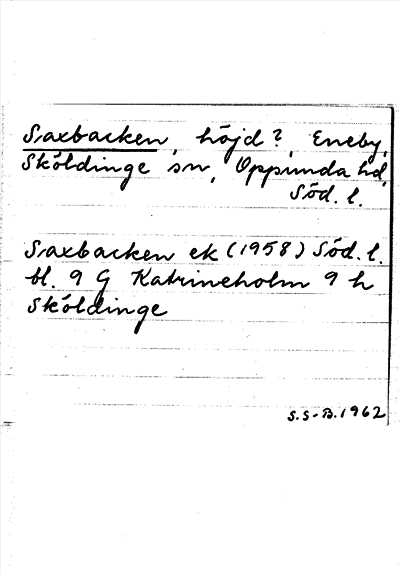 Saxbacken, höjd?, Eneby,
Sköldinge sn, Oppunda hd,
Söd. l.
Saxbacken ek (1958) Söd. l.
bl. 9 G Katrineholm 9 h
Sköldinge
S.S-B. 1962